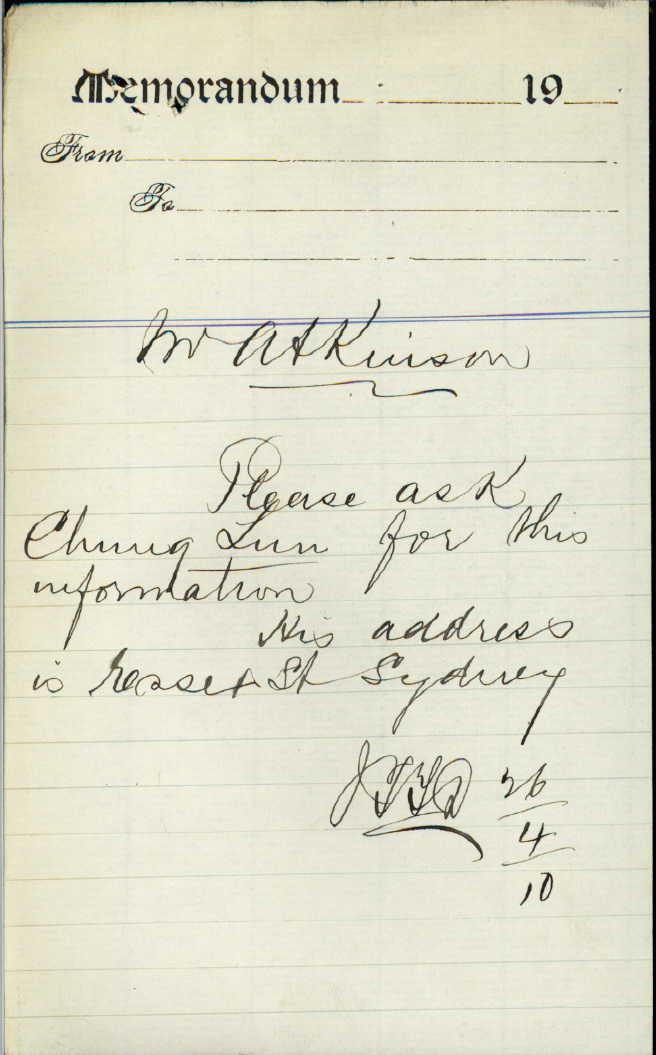 Memorandum 19
From
To
Mr Atkinson
Please ask
Chung Lun for this
information
His address
is St Sydney
26
4
10